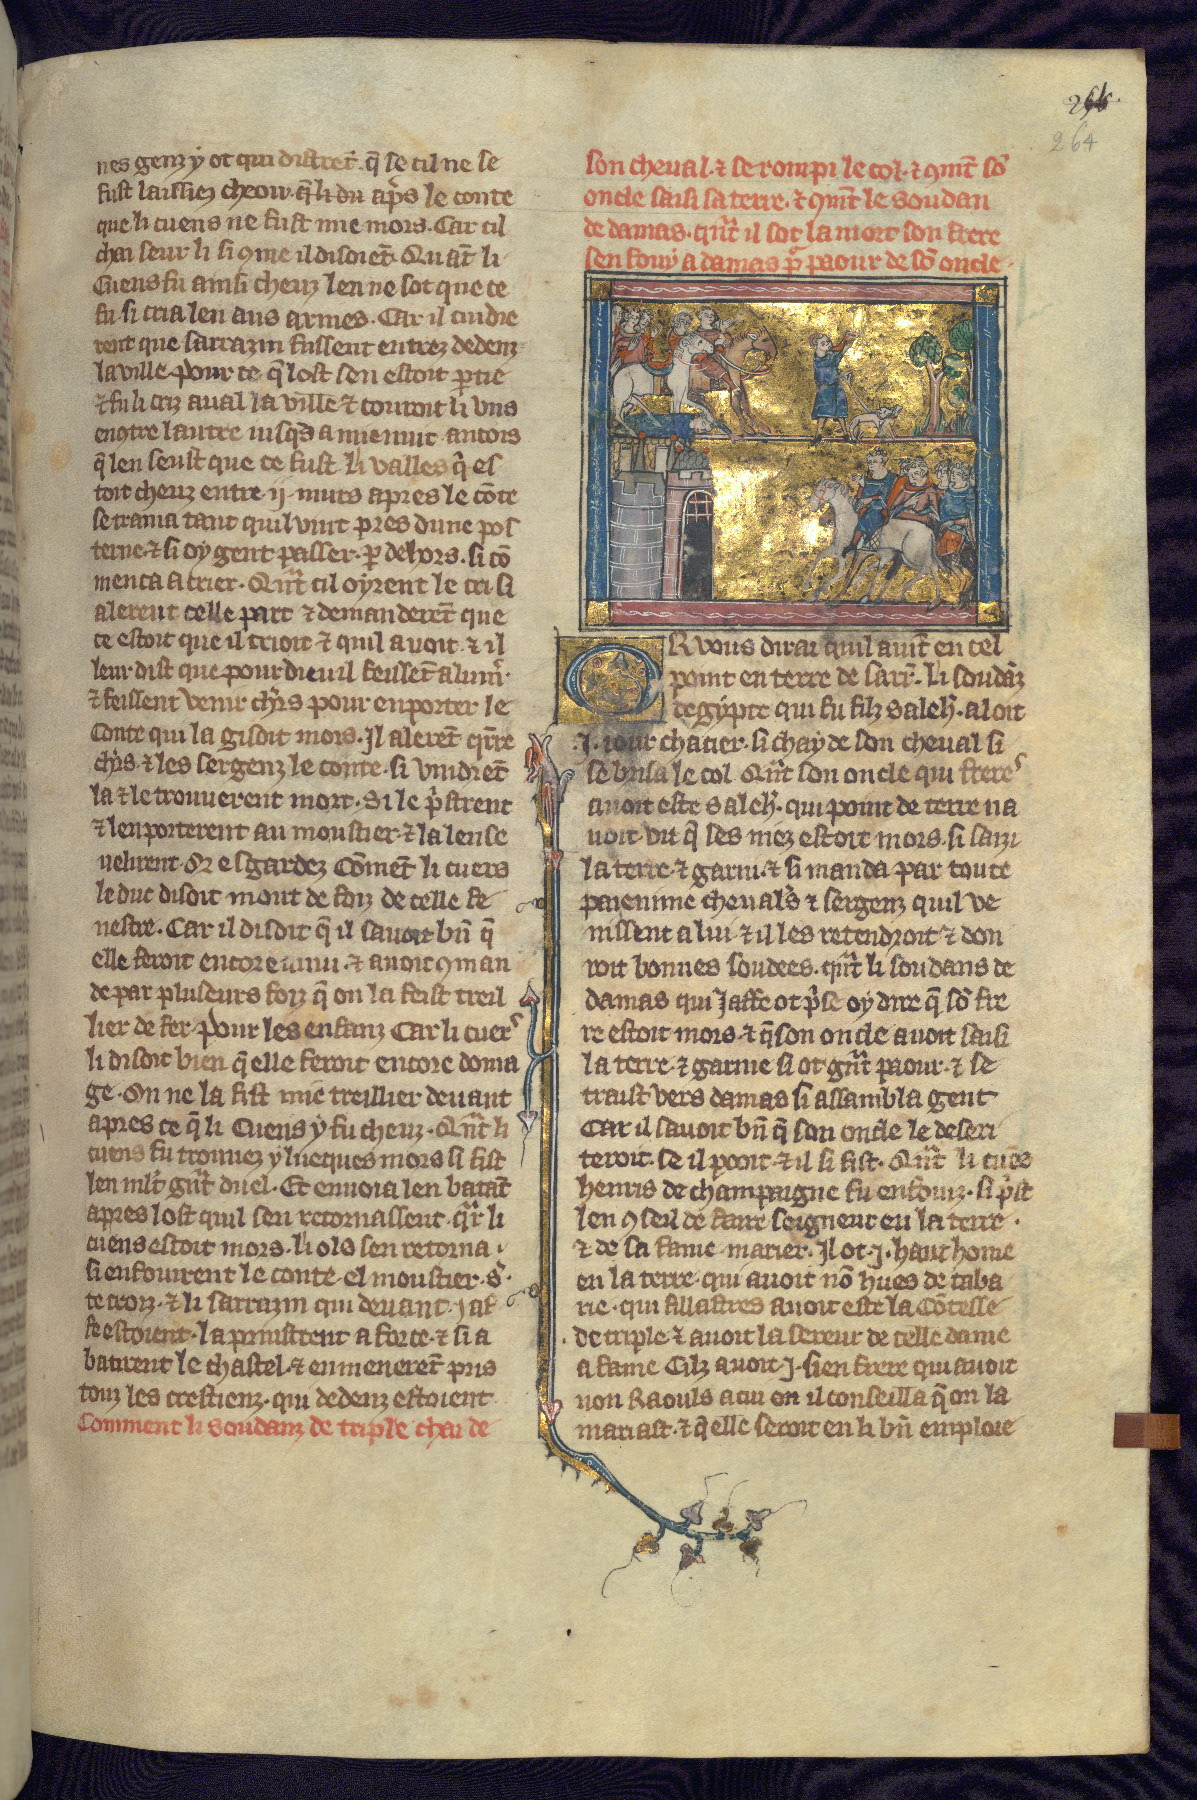 264
nes genz y ot qui distrēt. q̄ se cil ne se
fust laissiez cheoir. q̄ li du ap̄s le conte
que li cuens ne fust mie mors. Car cil
chai seur li si 9me il disoiēt. Quāt li
Cuens fu ainsi cheuz len ne sot que ce
fu. si cria len aus armes. Car il cuidie
rent que sarrazin fussent entrez dedenz
la ville. pour ce q̄ lost sen estoit ꝑtie
⁊ fu li criz aual la ville ⁊ couroit li vns
encontre lautre iusqˀd a mienuit. aincois
q̄ len seust que ce fust. Li valles q̄ es
toit cheuz entre .ij. murs apres le cōte
se traina tant quil vint pres dune pos
terne. ⁊ si oy gent passer. ꝑ dehors. si cō
menca a crier. Qn̄t cil oyrent le cri. si
alerent celle part ⁊ demanderēt que
ce estoit que il crioit ⁊ quil auoit. ⁊ il
leur dist que pour dieu il feissēt alum̄.
⁊ feissent venir ch̄rs pour enporter le
Conte qui la gisoit mors. Il alerēt q̄rre
ch̄rs. ⁊ les sergenz le conte. si vindrēt
la ⁊ le trouuerent mort. Si le p̄strent
⁊ lenporterent au moustier. ⁊ la lense
uelirent. Or esgardez Cōmēt li cuers
le duc disoit mout de foiz de celle fe
nestre. Car il disoit q̄ il sauoit bn̄ q̄
elle feroit encore ennui. ⁊ auoit 9man
de par pluseurs foiz q̄ on la feist treil
lier de fer. pour les enfanz Car li cuers
li disoit bien q̄ elle feroit encore doma
ge. On ne la fist mie treillier deuant
apres ce q̄ li Cuens y fu cheuz. Qn̄t li
cuens fu trouuez yluecques mors si fist
len ml̄t gn̄t duel. Et enuoia len batāt
apres lost quil sen retornassent. q̄r li
cuens estoit mors. Li ols sen retorna.
si enfouirent le conte el moustier. S.
te croiz. ⁊ li sarrazin qui deuant. Jaf
fe estoient. la prinstrent a force. ⁊ si a
batirent le chastel. ⁊ enmenerēt pris
touz les crestienz. qui dedenz estoient
Comment li soudanz de triple chai de
son cheual. ⁊ se rompi le col. ⁊ 9mēt sō
oncle saisi sa terre. ⁊ 9mēt le soudan
de damas. qn̄t il sot la mort son frere
sen foui a damas ꝑ paour de sō oncle
OR vous dirai quil auīt en cel
point en terre de sarr̄. Li soudāz
degypte qui fu filz saleh̄. aloit
.J. iour chacier. si chay de son cheual si
se brisa le col. Qn̄t son oncle qui freres
auoit este saleh̄. qui point de terre na
uoit vit q̄ ses niez estoit mors. si saizi
la terre. ⁊ garni. ⁊ si manda par toute
paiennime cheual̄s ⁊ sergenz quil ve
nissent a lui. ⁊ il les retendroit ⁊ don
roit bonnes soudees. qn̄t li soudans de
damas qui Jaffe ot p̄se oy dire q̄ sō fre
re estoit mors. ⁊ q̄ son oncle auoit saisi
la terre. ⁊ garnie si ot gn̄t paour. ⁊ se
traist vers damas si assambla gent
Car il sauoit bn̄ q̄ son oncle le deseri
teroit. se il pooit. ⁊ il si fist. Qn̄t li cuēs
henris de champaigne fu enfouiz. si p̄st
len 9seil de faire seigneur en la terre.
⁊ de sa fame marier. Il ot .J. haut home
en la terre. qui auoit nō hues de taba
rie. qui fillastres auoit este la Cōtesse
de triple. ⁊ auoit la sereur de celle dame
a fame Cilz auoit .J. sien frere qui auoit
non Raouls a cui en il conseilla q̄ on la
mariast. ⁊ q̄ elle seroit en li bn̄ emploie